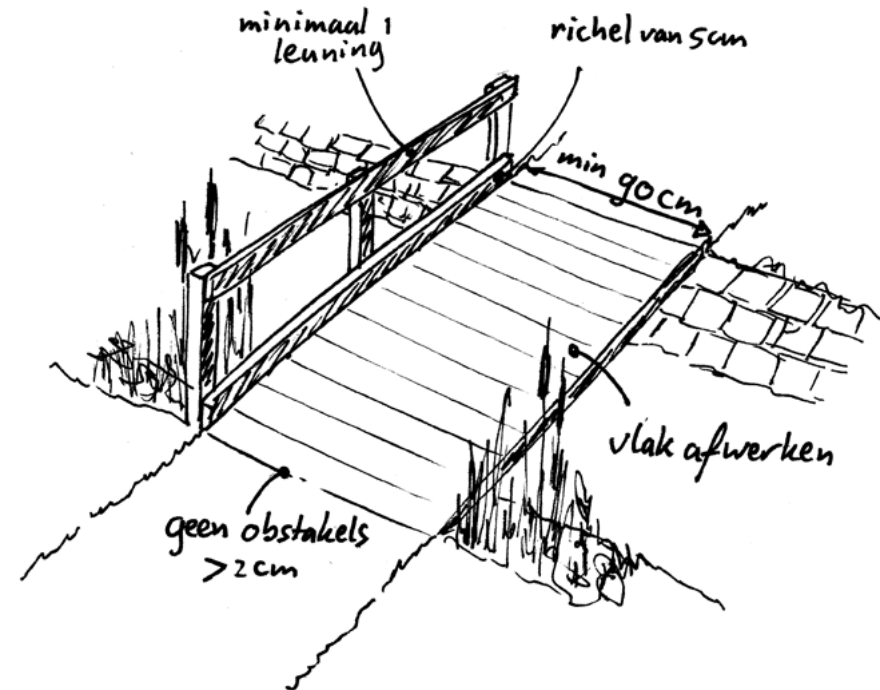 minimaal 1
leuning
richel van 5cm
min 90 cm
vlak afwerken
geen obstakels
> 2cm